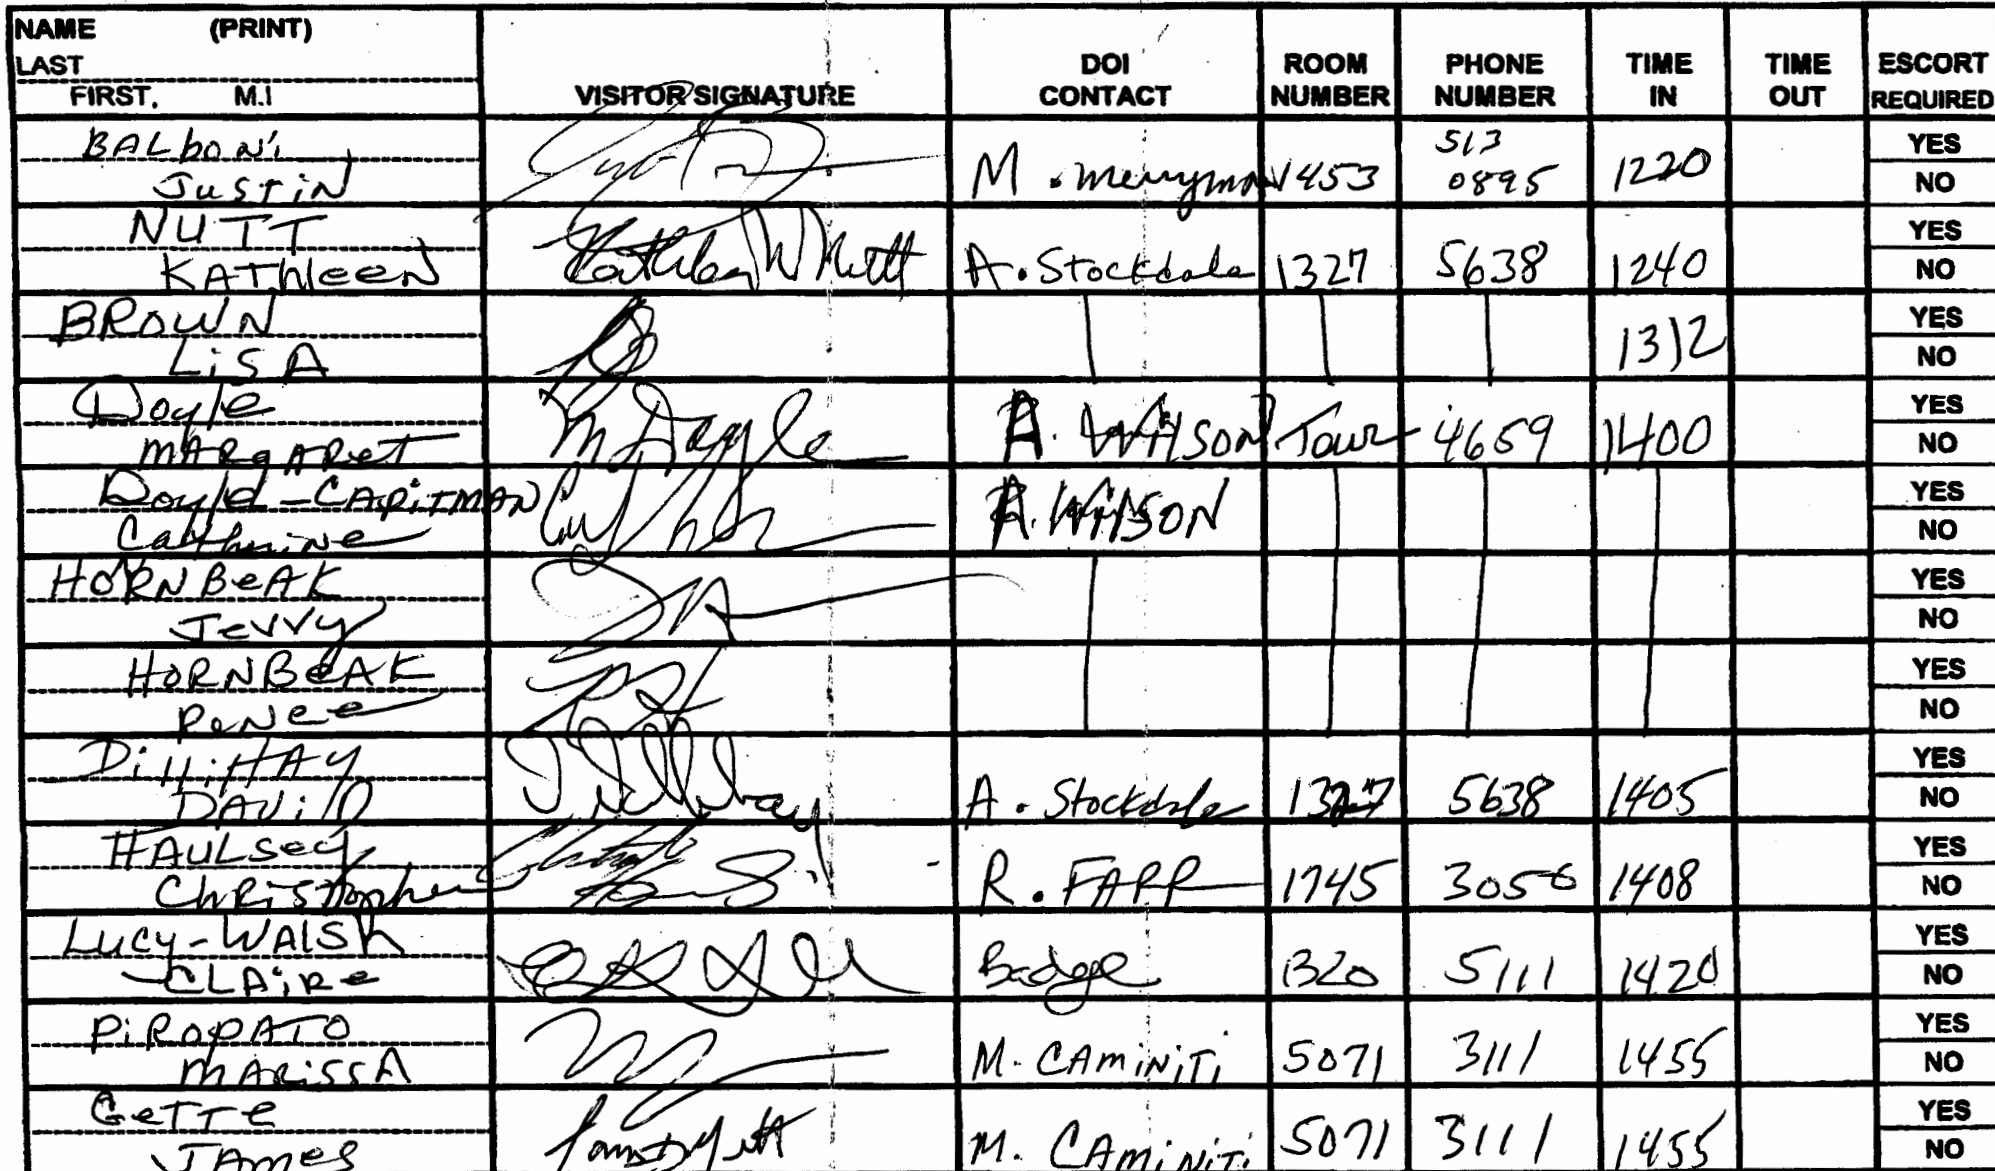 NAME (PRINT)
LAST
FIRST, M.I
VISITOR SIGNATURE
DOI CONTACT
ROOM NUMBER
PHONE NUMBER
TIME IN
TIME OUT
ESCORT REQUIRED
BALboNi
JUSTiN
M. merryman 1453 513 0895 1220
YES
NO
NUTT
KATHleeN
Kathleen W Nutt
A. Stockdale 1327 5638 1240
YES
NO
BROWN
LiSA
1312
YES
NO
Doyle
MARgARet
M Doyle
A. WilSON Tour 4659 1400
YES
NO
Doyle-CAPiTMAN
Catherine
A. WilSON
YES
NO
HORNBeAK
Jerry
YES
NO
HORNBeAK
ReNee
YES
NO
DilliHAy
DAViD
D Dillihay
A. Stockdale 1327 5638 1405
YES
NO
HAULSey
ChRiStopher
R. FARR 1745 3056 1408
YES
NO
LUCy-WAlSh
CLAiRe
Badge 1320 5111 1420
YES
NO
PiROPATO
MARiSSA
M. CAMiNiTi 5071 3111 1455
YES
NO
GeTTe
JAMeS
M. CAMiNiTi 5071 3111 1455
YES
NO